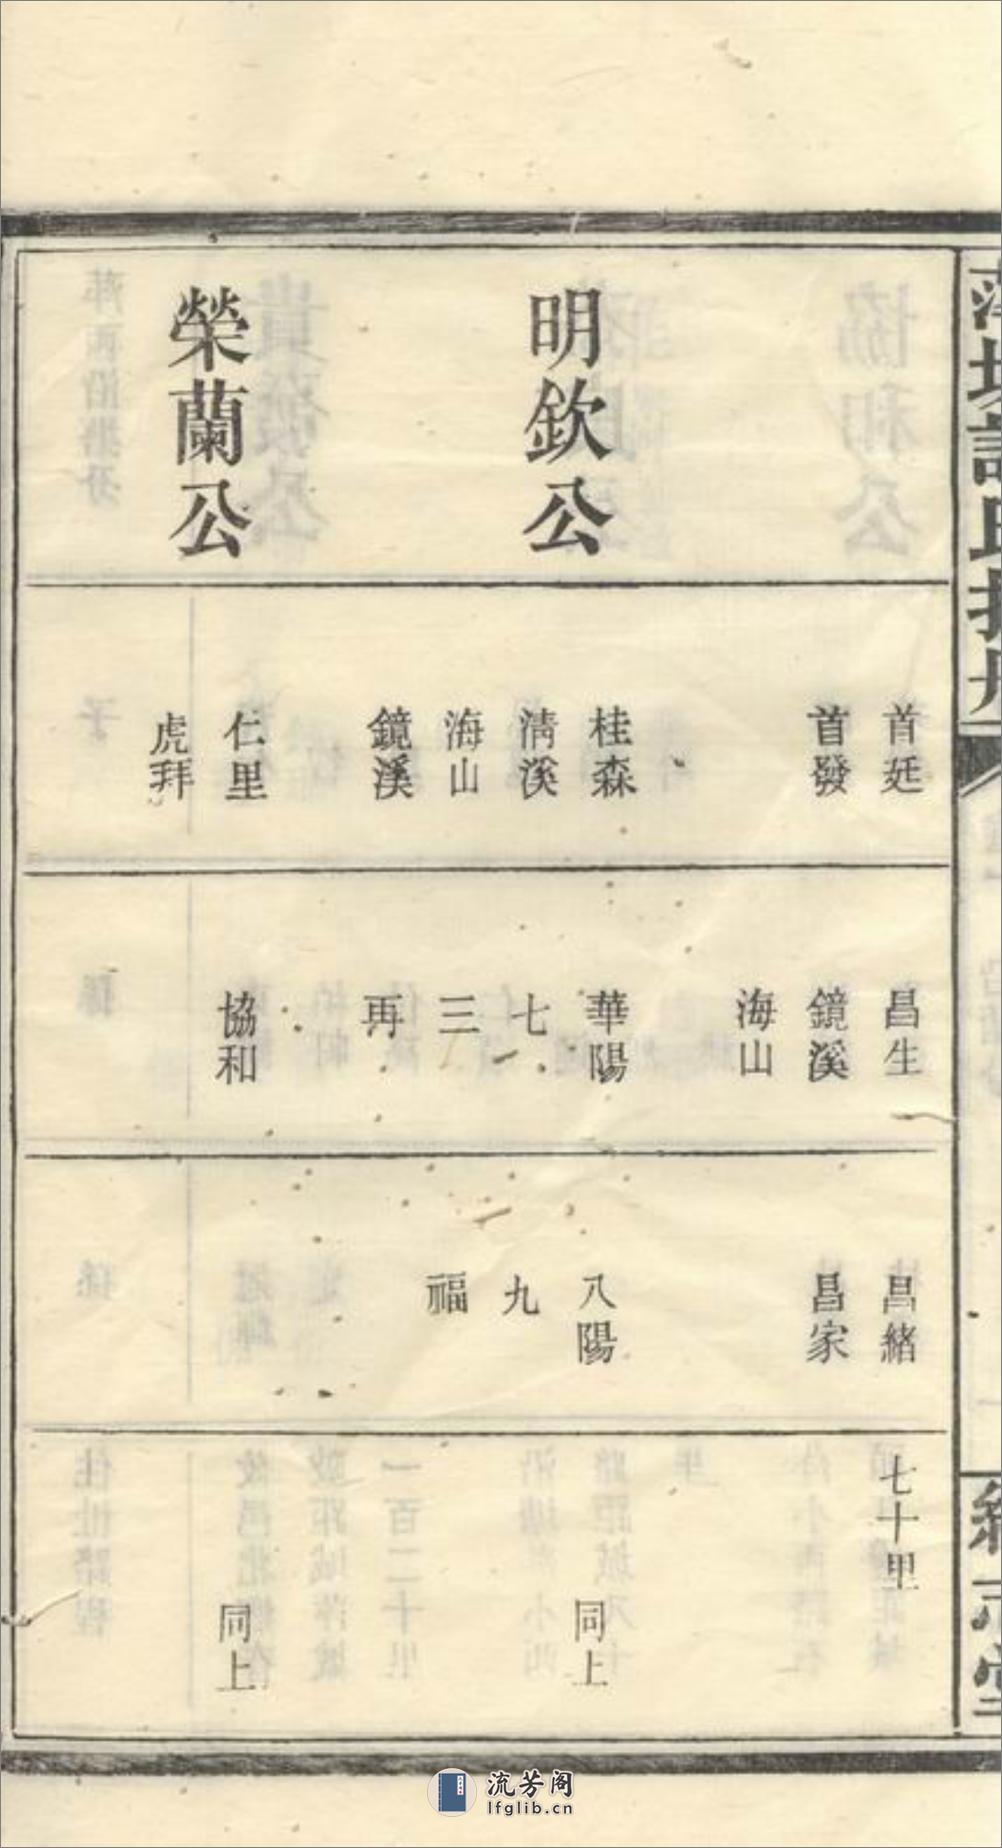 首廷
首發
昌生
鏡溪
海山
昌緒
昌家
七十里
明欽公
桂森
淸溪
海山
鏡溪
華陽
七
三
再
八陽
九
福
同上
榮蘭公
仁里
虎拜
協和
同上
流芳阁
lfglib.cn